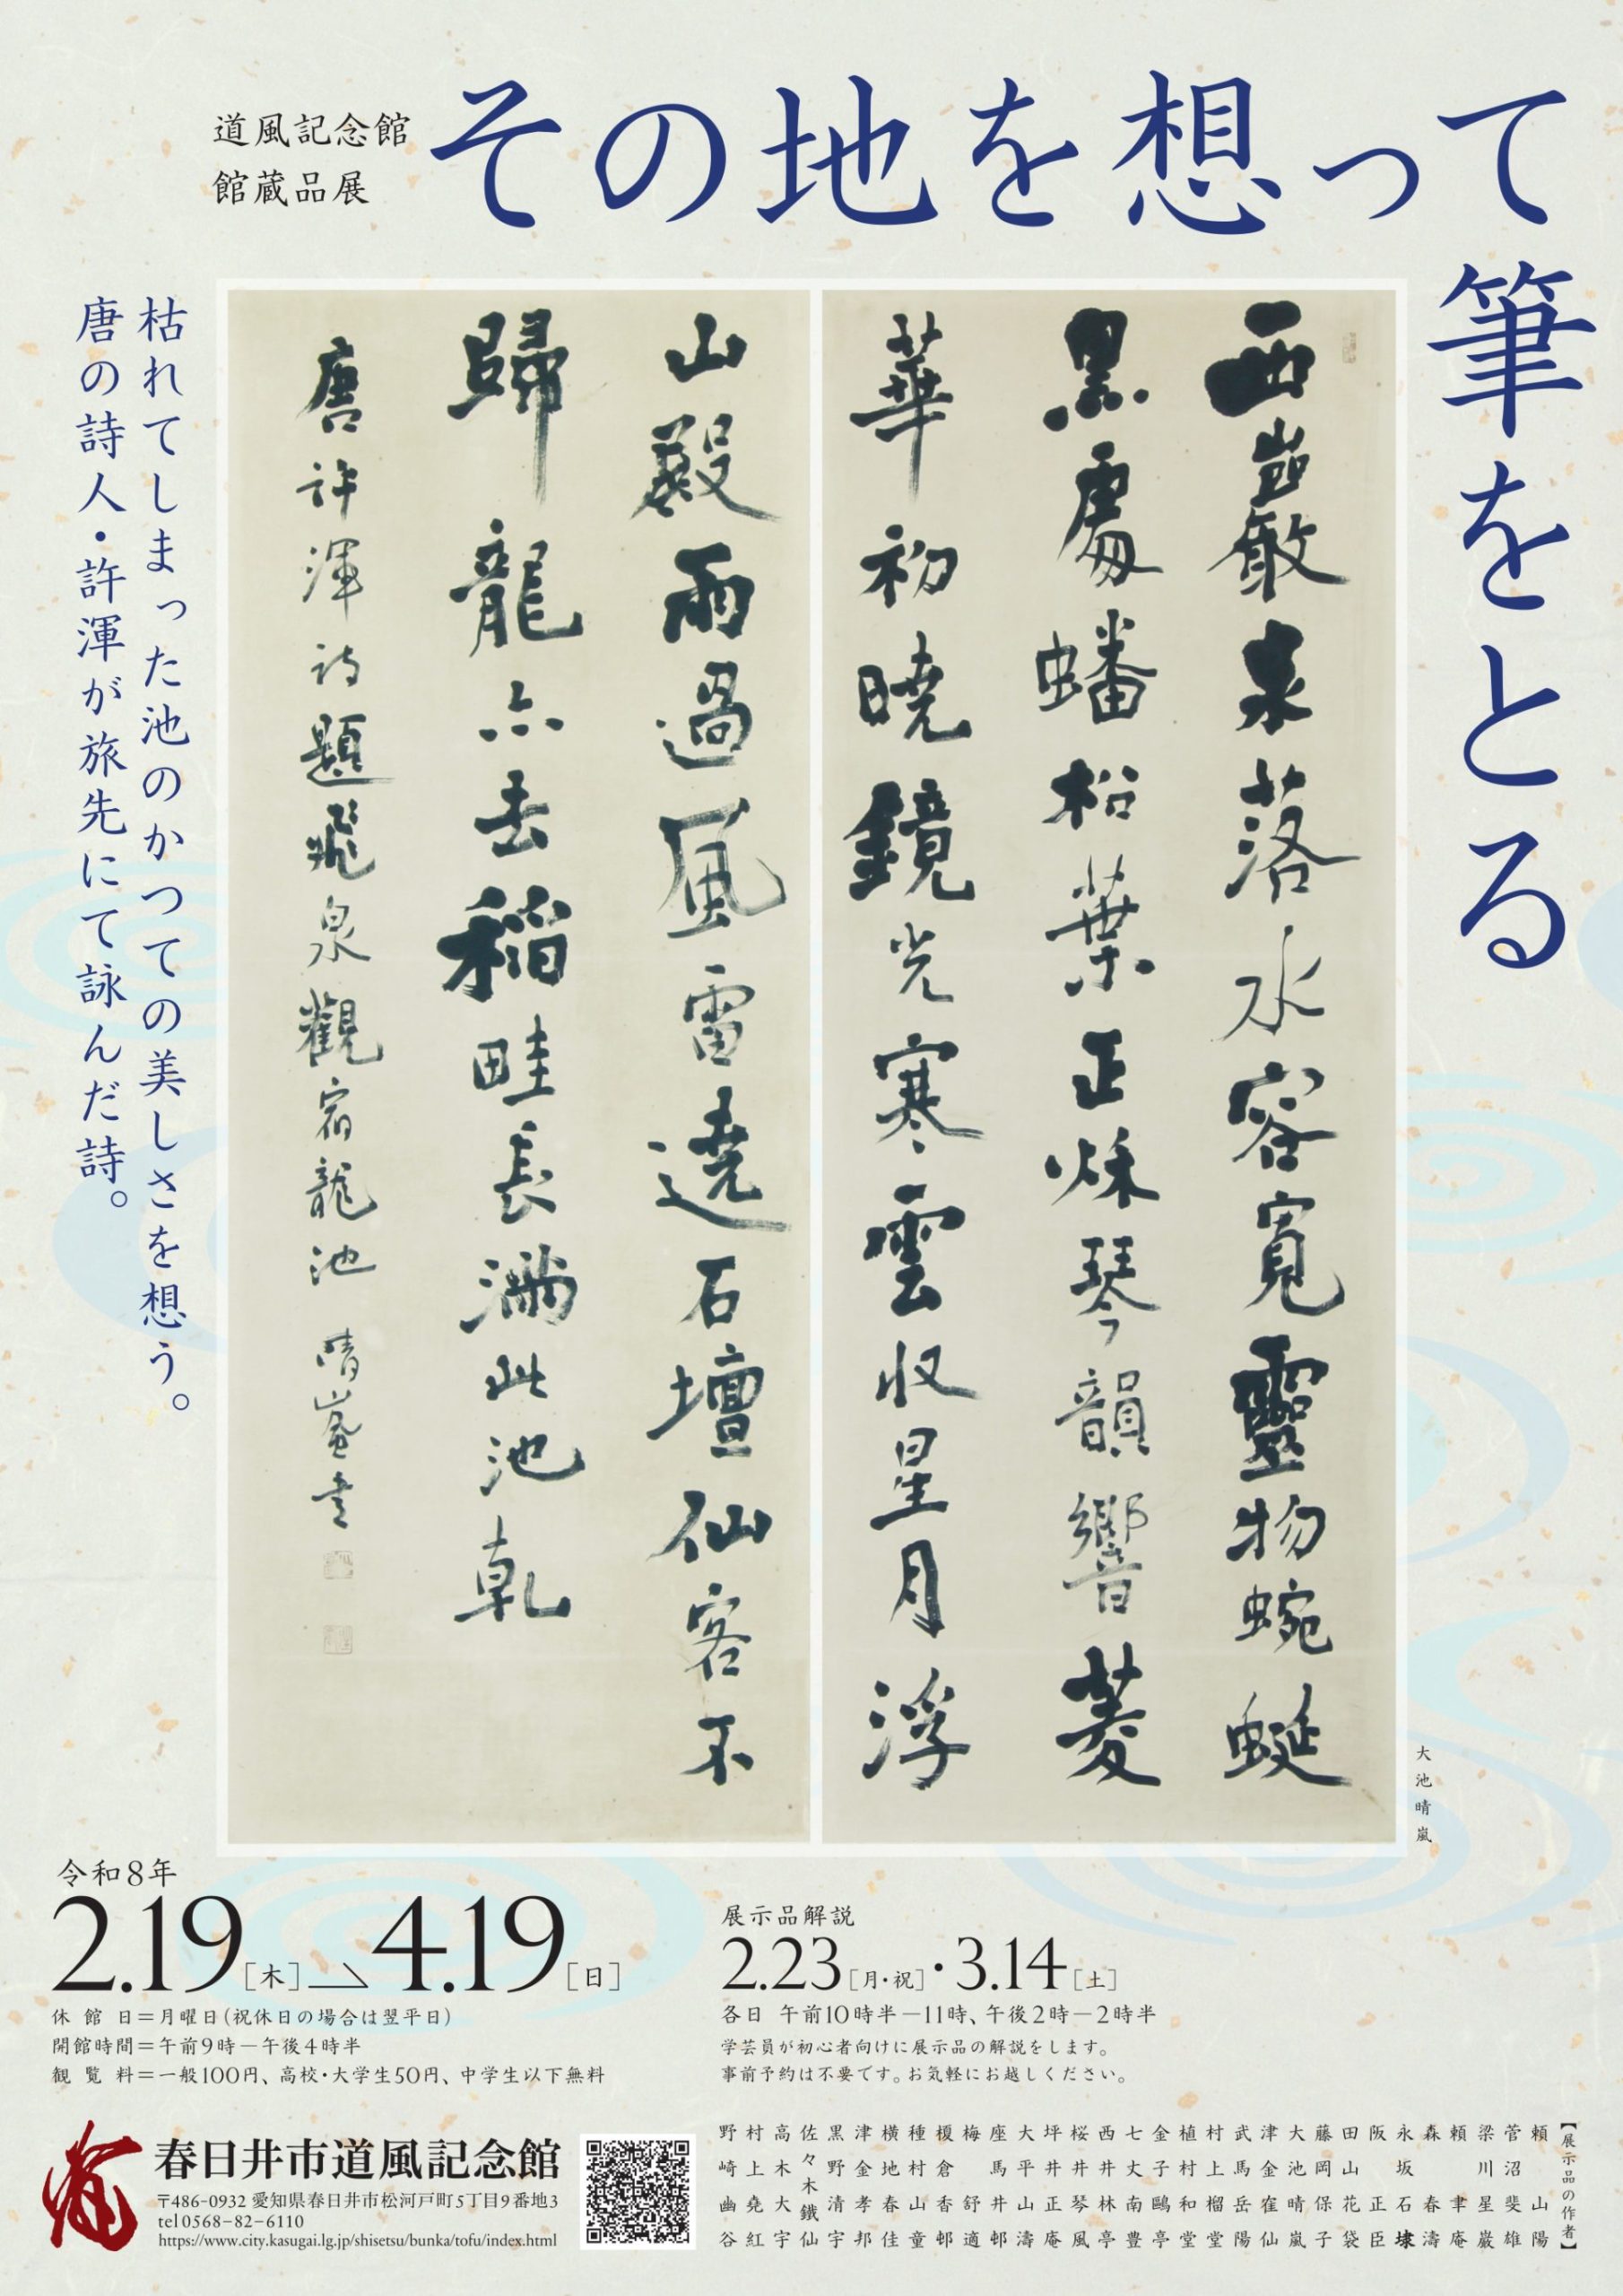 道風記念館
館蔵品展
その地を想って
筆をとる
西巖泉落水容寛靈物蜿蜒
黒處蟠松葉正秌琴韻響菱
華初曉鏡光寒雲収星月浮
山殿雨過風雷遶石壇仙客不
歸龍亦去稻畦長滿此池乾
唐許渾詩題飛泉觀宿龍池 晴嵐書
枯れてしまった池のかつての美しさを想う。
唐の詩人・許渾が旅先にて詠んだ詩。
大池晴嵐
令和8年
2.19［木］→4.19［日］
休館日＝月曜日（祝休日の場合は翌平日）
開館時間＝午前9時－午後4時半
観覧料＝一般100円、高校・大学生50円、中学生以下無料
展示品解説
2.23［月・祝］・3.14［土］
各日 午前10時半－11時、午後2時－2時半
学芸員が初心者向けに展示品の解説をします。
事前予約は不要です。お気軽にお越しください。
春日井市道風記念館
〒486-0932 愛知県春日井市松河戸町5丁目9番地3
tel 0568-82-6110
https://www.city.kasugai.lg.jp/shisetsu/bunka/tofu/index.html
【展示品の作者】
頼山陽
菅沼斐雄
梁川星巌
頼聿庵
森春濤
永坂石埭
阪正臣
田山花袋
藤岡保子
大池晴嵐
津金寉仙
武馬岳陽
村上榴堂
植村和堂
金子鷗亭
七丈南豊
西井林亭
桜井琴風
坪井正庵
大平山濤
座馬井邨
梅舒適
榎倉香邨
種村山童
横地春佳
津金孝邦
黒野清宇
佐々木鐵仙
高木大宇
村上堯紅
野崎幽谷